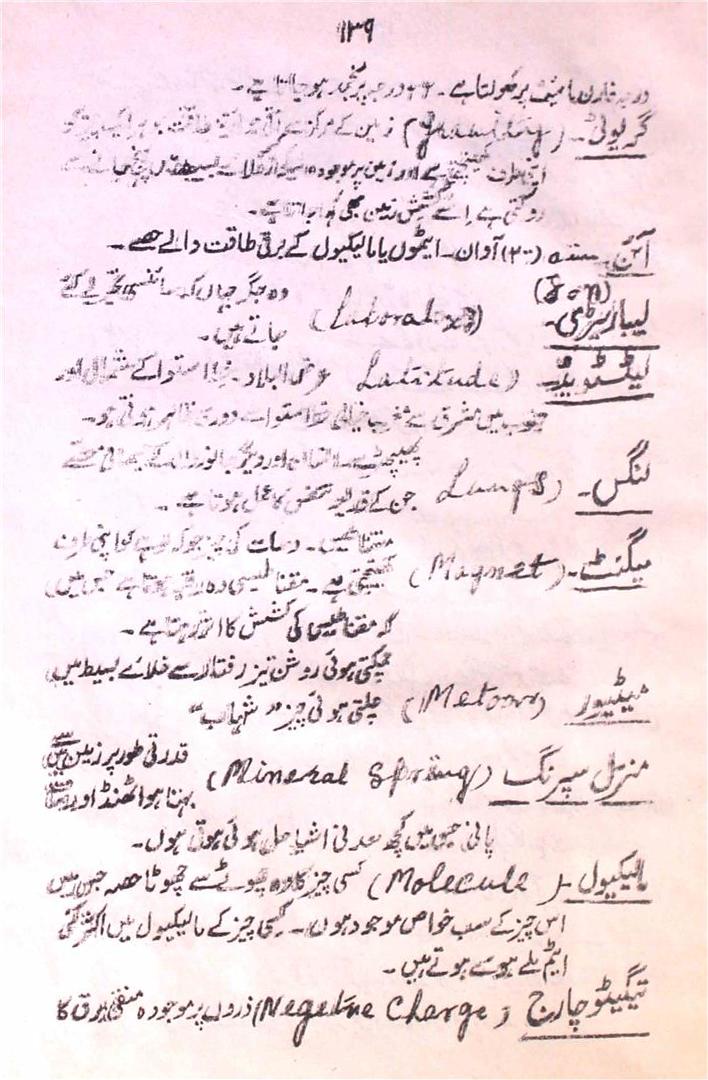 ۱۳۹
درجہ فارن ہائیٹ پر کھولتا ہے۔ ۳۲ درجہ پر منجمد ہو جاتا ہے۔
گریوٹی۔ (Gravity) زمین کے مرکز سے
اپنی طرف کھینچتی ہے اور زمین پر موجودہ
روکتی ہے اسے کشش زمین بھی کہا جاتا ہے۔
آئن۔ (۲۰) آوان۔ ایٹموں یا مالیکیول کے برقی طاقت والے حصے۔
(Ion)
لیبارٹری۔ (Laboratory) وہ جگہ جہاں کہ سائنسی تجربے کئے
جاتے ہیں۔
لیٹیٹیوڈ۔ (Latitude) عرض البلاد۔ خط استوا کے شمال اور
جنوب میں مشرق سے مغرب خیالی خط استوا سے دوری ظاہر ہوتی ہو۔
لنگس۔ (Lungs) پھیپھڑے۔ انسان اور دیگر جانوروں کے جسمانی حصے
جن کے ذریعہ تنفس کا عمل ہوتا ہے۔
میگنٹ۔ (Magnet) مقناطیس۔ دھات کی چیز جو کہ لوہے کو اپنی طرف
کھینچتی ہے۔ مقناطیسی وہ رقبہ ہوتا ہے جس میں
کہ مقناطیس کی کشش کا اثر رہتا ہے۔
میٹیور (Metoor) چمکتی ہوئی روشن تیز رفتار سے خلائے بسیط میں
چلتی ہوئی چیز "شہاب"
منرل سپرنگ (Mineral Spring) قدرتی طور پر زمین میں سے
بہتا ہوا ٹھنڈ اور
پانی جس میں کچھ معدنی اشیا حل ہوئی ہوتی ہوں۔
مالیکیول۔ (Molecule) کسی چیز کا وہ چھوٹے سے چھوٹا حصہ جس میں
اس چیز کے سب خواص موجود ہوں۔ کسی چیز کے مالیکیول میں اکثر کئی
ایٹم ملے ہوئے ہوتے ہیں۔
نیگیٹو چارج (Negetine Charge) ذروں پر موجودہ منفی برق کا